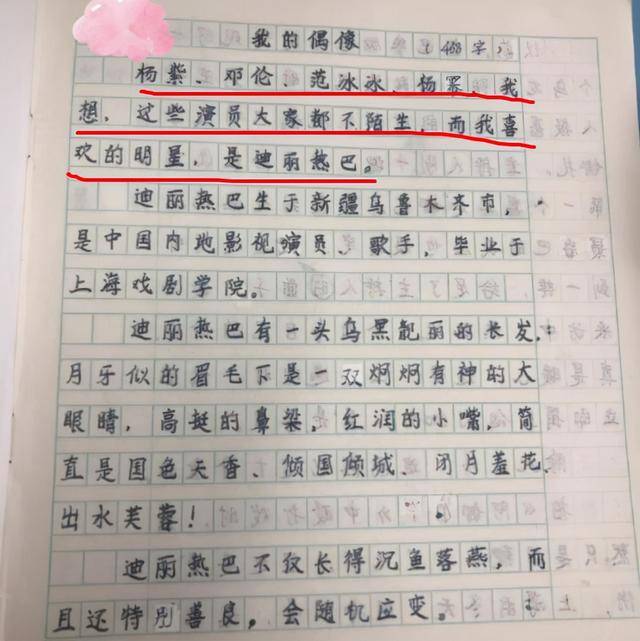 我的偶像 (468字)
杨紫、邓伦、范冰冰、杨幂、我
想,这些演员大家都不陌生,而我喜
欢的明星,是迪丽热巴。
迪丽热巴生于新疆乌鲁木齐市,
是中国内地影视演员、歌手,毕业于
上海戏剧学院。
迪丽热巴有一头乌黑靓丽的长发,
月牙似的眉毛下是一双炯炯有神的大
眼睛,高挺的鼻梁,红润的小嘴,简
直是国色天香、倾国倾城、闭月羞花、
出水芙蓉!
迪丽热巴不仅长得沉鱼落燕,而
且还特别善良,会随机应变。